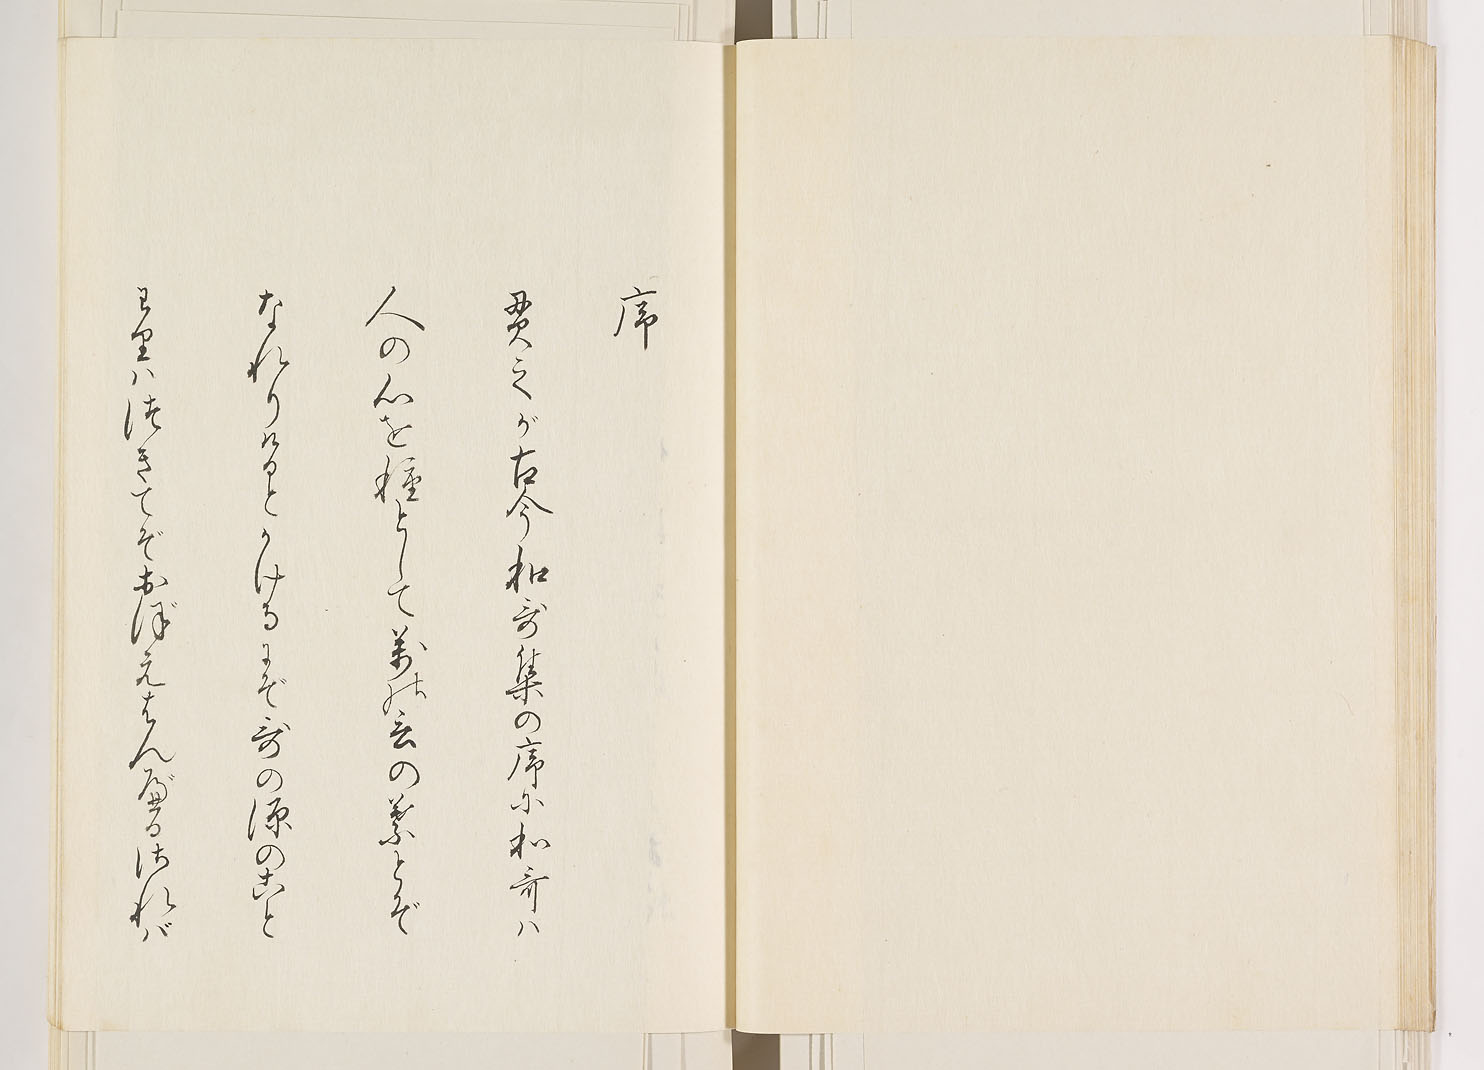 序
貫之が古今和歌集の序に和哥ハ
人の心を種として萬の言の葉とぞ
なれりけるとかけるにぞ歌の源のこと
わりハつきてぞおぼえはんべるされバ